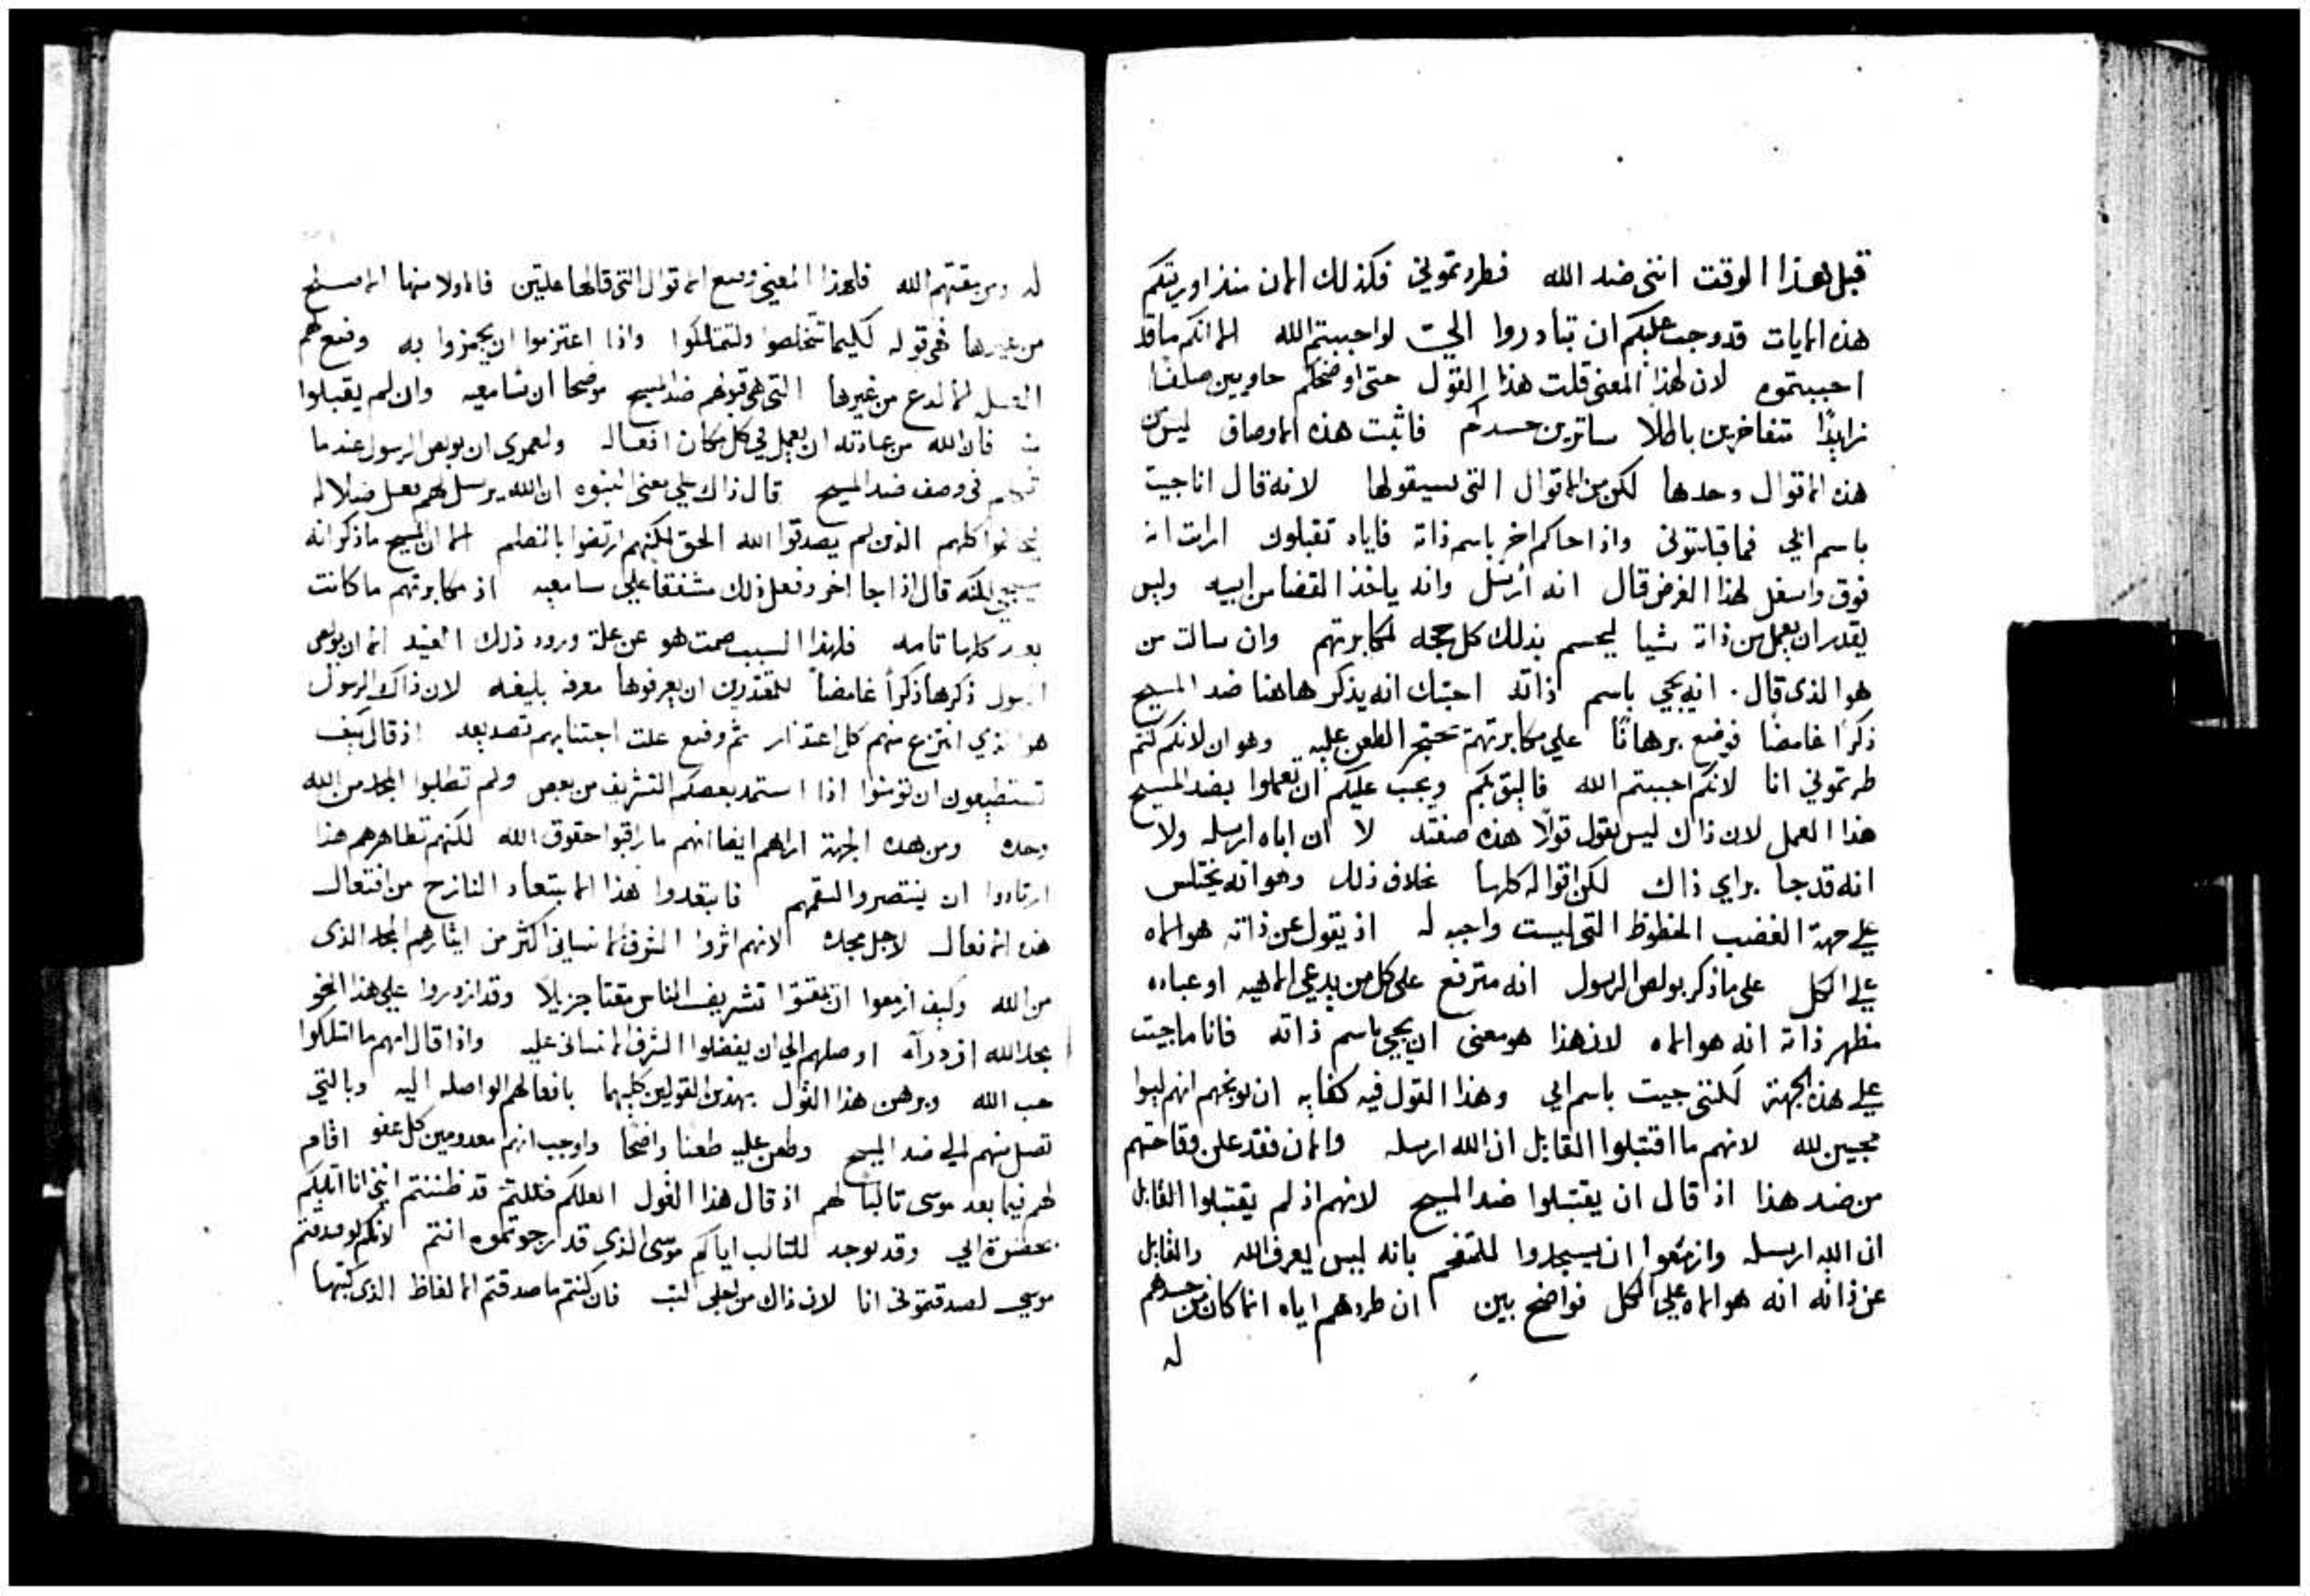 قبل هذا الوقت انني ضد الله فطردتموني فكذلك الان منذ اوريتكم
هذه الايات قد وجب عليكم ان تبادروا الي لو احببتم الله الا انكم ما قد
احببتموه لان لهذا المعنى قلت هذا القول حتى اوضحكم حاويين صلفًا
زايدًا متفاخرين باطلا ساترين حسدكم فاثبت هذه الاوصاف ليس من
هذه الاقوال وحدها لكن من الاقوال التي سيقولها لانه قال انا جيت
باسم ابي فما قبلتموني واذا جاكم اخر باسم ذاته فاياه تقبلون ارايت انه
فوق واسفل لهذا الغرض قال انه ارسل وانه ياخذ القضا من ابيه وليس
يقدر ان يعمل من ذاته شيا ليحسم بذلك كل حجه لمكابرتهم وان سالت من
هو الذي قال انه يجي باسم ذاته اجبتك انه يذكر هاهنا ضد المسيح
ذكرًا غامضًا فوضع برهانًا علي مكابرتهم محتجر الطعن عليه وهو ان لانكم كنتم
طردتموني انا لانكم احببتم الله فاليق بكم ويجب عليكم ان تعملوا بضد المسيح
هذا العمل لان ذاك ليس يقول قولًا هذه صفته لا ان اباه ارسله ولا
انه قد جا براي ذاك لكن اقواله كلها بخلاف ذلك وهو انه يختلس
علي جهة الغضب الحظوظ التي ليست واجبه له اذ يقول عن ذاته هو الاه
علي الكل على ما ذكر بولص الرسول انه مترفع على كل من يدعي الاهيه او عباده
مظهر ذاته انه هو الاه لان هذا هو معنى ان يجي باسم ذاته فانا ما جيت
علي هذه الجهة لكنني جيت باسم ابي وهذا القول فيه كفايه ان يوبخهم انهم ليسوا
محبين لله لانهم ما اقتبلوا القايل ان الله ارسله والان فقد علن وقاحتهم
من ضد هذا اذ قال ان يقتبلوا ضد المسيح لانهم اذ لم يقتبلوا القايل
ان الله ارسله وازمعوا ان يسجدوا للمتفخم بانه ليس يعرف الله والقايل
عن ذاته انه هو الاه علي الكل فواضح بين ان طردهم اياه انما كان من حسدهم
له
له ومن مقتهم الله فلهذا المعنى وضع الاقوال التي قالها علتين فالاولا منها
من غيرها فهي قوله لكيما تتخلصوا ولتمتلكوا واذا اعتزموا ان يجمزوا به وضع لهم
من غيرها التي هي قبولهم ضد المسيح موضحا ان سامعيه وان لم يقبلوا
منه فان الله من عادته ان يعمل في كل مكان افعاله ولعمري ان بولص الرسول عندما
في وصف ضد المسيح قال ذاك علي معنى النبوه ان الله يرسل لهم فعل ضلاله
كلهم الذين لم يصدقوا الله الحق لكنهم ارتضوا بالظلم الا ان المسيح ما ذكر انه
سيجي لكنه قال اذا جا اخر وفعل ذلك مشفقا علي سامعيه اذ مكابرتهم ما كانت
بعد كلها تامه فلهذا السبب صمت هو عن علة ورود ذلك العنيد الا ان بولص
الرسول ذكرها ذكرًا غامضًا للمقتدرين ان يعرفوها معرفه بليغه لان ذاك الرسول
هو الذي انتزع منهم كل اعتذار ثم وضع علت اجتنابهم تصديقه اذ قال كيف
تستطيعون ان تومنوا اذا استمد بعضكم التشريف من بعض ولم تطلبوا المجد من الله
وحده ومن هذه الجهة اراهم ايضا انهم ما راقبوا حقوق الله لكنهم تظاهرهم هذا
ارتادوا ان ينتصروا لسقمهم فابتعدوا هذا الابتعاد النازح من افتعال
هذه الافعال لاجل مجده لانهم اثروا الشرف الانساني اكثر من ايثارهم المجد الذي
من الله وكيف ازمعوا ان يمقتوا تشريف الناس مقتا جزيلًا وقد ازدروا علي هذا النحو
بمجد الله ازدرآه اوصلهم الي ان يفضلوا الشرف الانساني عليه واذا قال انهم ما امتلكوا
حب الله وبرهن هذا القول بهذين القولين كليهما بافعالهم الواصله اليه وبالتي
تصل منهم الي ضد المسيح وطعن عليه طعنا واضحًا واوجب انهم معدومين كل عفو اقام
لهم فيما بعد موسى ثالبا لهم اذ قال هذا القول العلكم ظننتم قد ظننتم انني انا اثلبكم
بحضرة ابي وقد يوجد للثالب اياكم موسى الذي قد ارجوتموه انتم لانكم لو صدقتم
موسي لصدقتموني انا لان ذاك من اجلي كتب فان كنتم ما صدقتم الالفاظ الذي كتبها